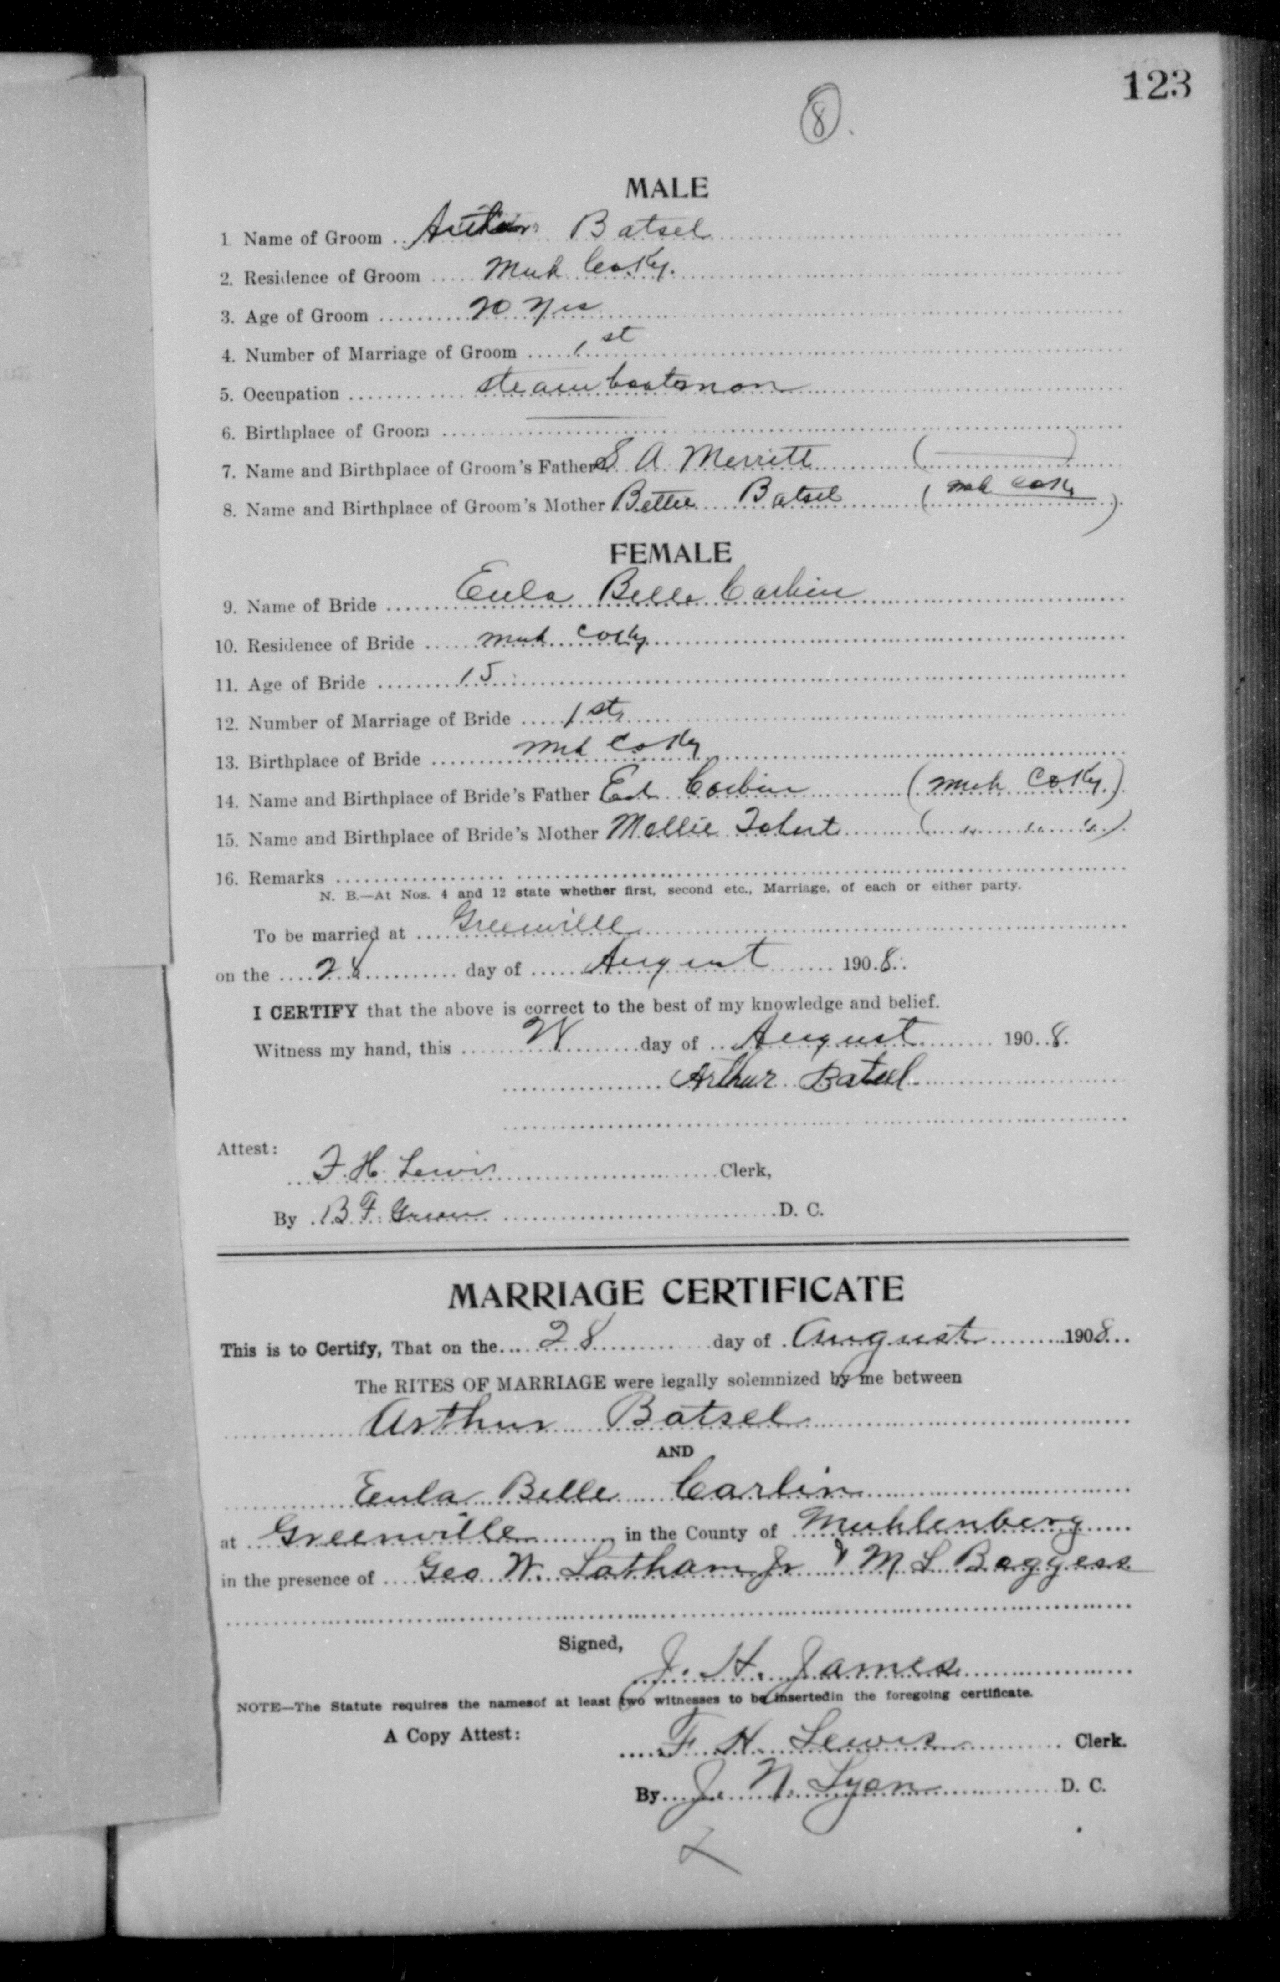 123
8
MALE
1 Name of Groom Arthur Batsel
2. Residence of Groom Muh Co Ky.
3. Age of Groom 20 yrs
4. Number of Marriage of Groom 1st
5. Occupation steamboatman
6. Birthplace of Groom
7. Name and Birthplace of Groom's Father S A Merritt ( )
8. Name and Birthplace of Groom's Mother Bettie Batsel (Muh Co Ky)
FEMALE
9. Name of Bride Eula Belle Carbin
10. Residence of Bride Muh Co Ky
11. Age of Bride 15
12. Number of Marriage of Bride 1st
13. Birthplace of Bride Muh Co Ky
14. Name and Birthplace of Bride's Father Ed Corbin (Muh Co Ky)
15. Name and Birthplace of Bride's Mother Mollie (" " ")
16. Remarks
N. B.—At Nos. 4 and 12 state whether first, second etc., Marriage, of each or either party.
To be married at Greenville
on the 28 day of August 1908.
I CERTIFY that the above is correct to the best of my knowledge and belief.
Witness my hand, this 28 day of August 1908.
Arthur Batsel
Attest:
F. H. Lewis Clerk,
By B F Green D. C.
MARRIAGE CERTIFICATE
This is to Certify, That on the 28 day of August 1908
The RITES OF MARRIAGE were legally solemnized by me between
Arthur Batsel
AND
Eula Belle Carlin
at Greenville in the County of Muhlenberg
in the presence of Geo W. Latham Jr & M L Boggess
Signed,
J. H. James
NOTE—The Statute requires the namesof at least two witnesses to be insertedin the foregoing certificate.
A Copy Attest:
F H Lewis Clerk.
By J. N. Lyon D. C.